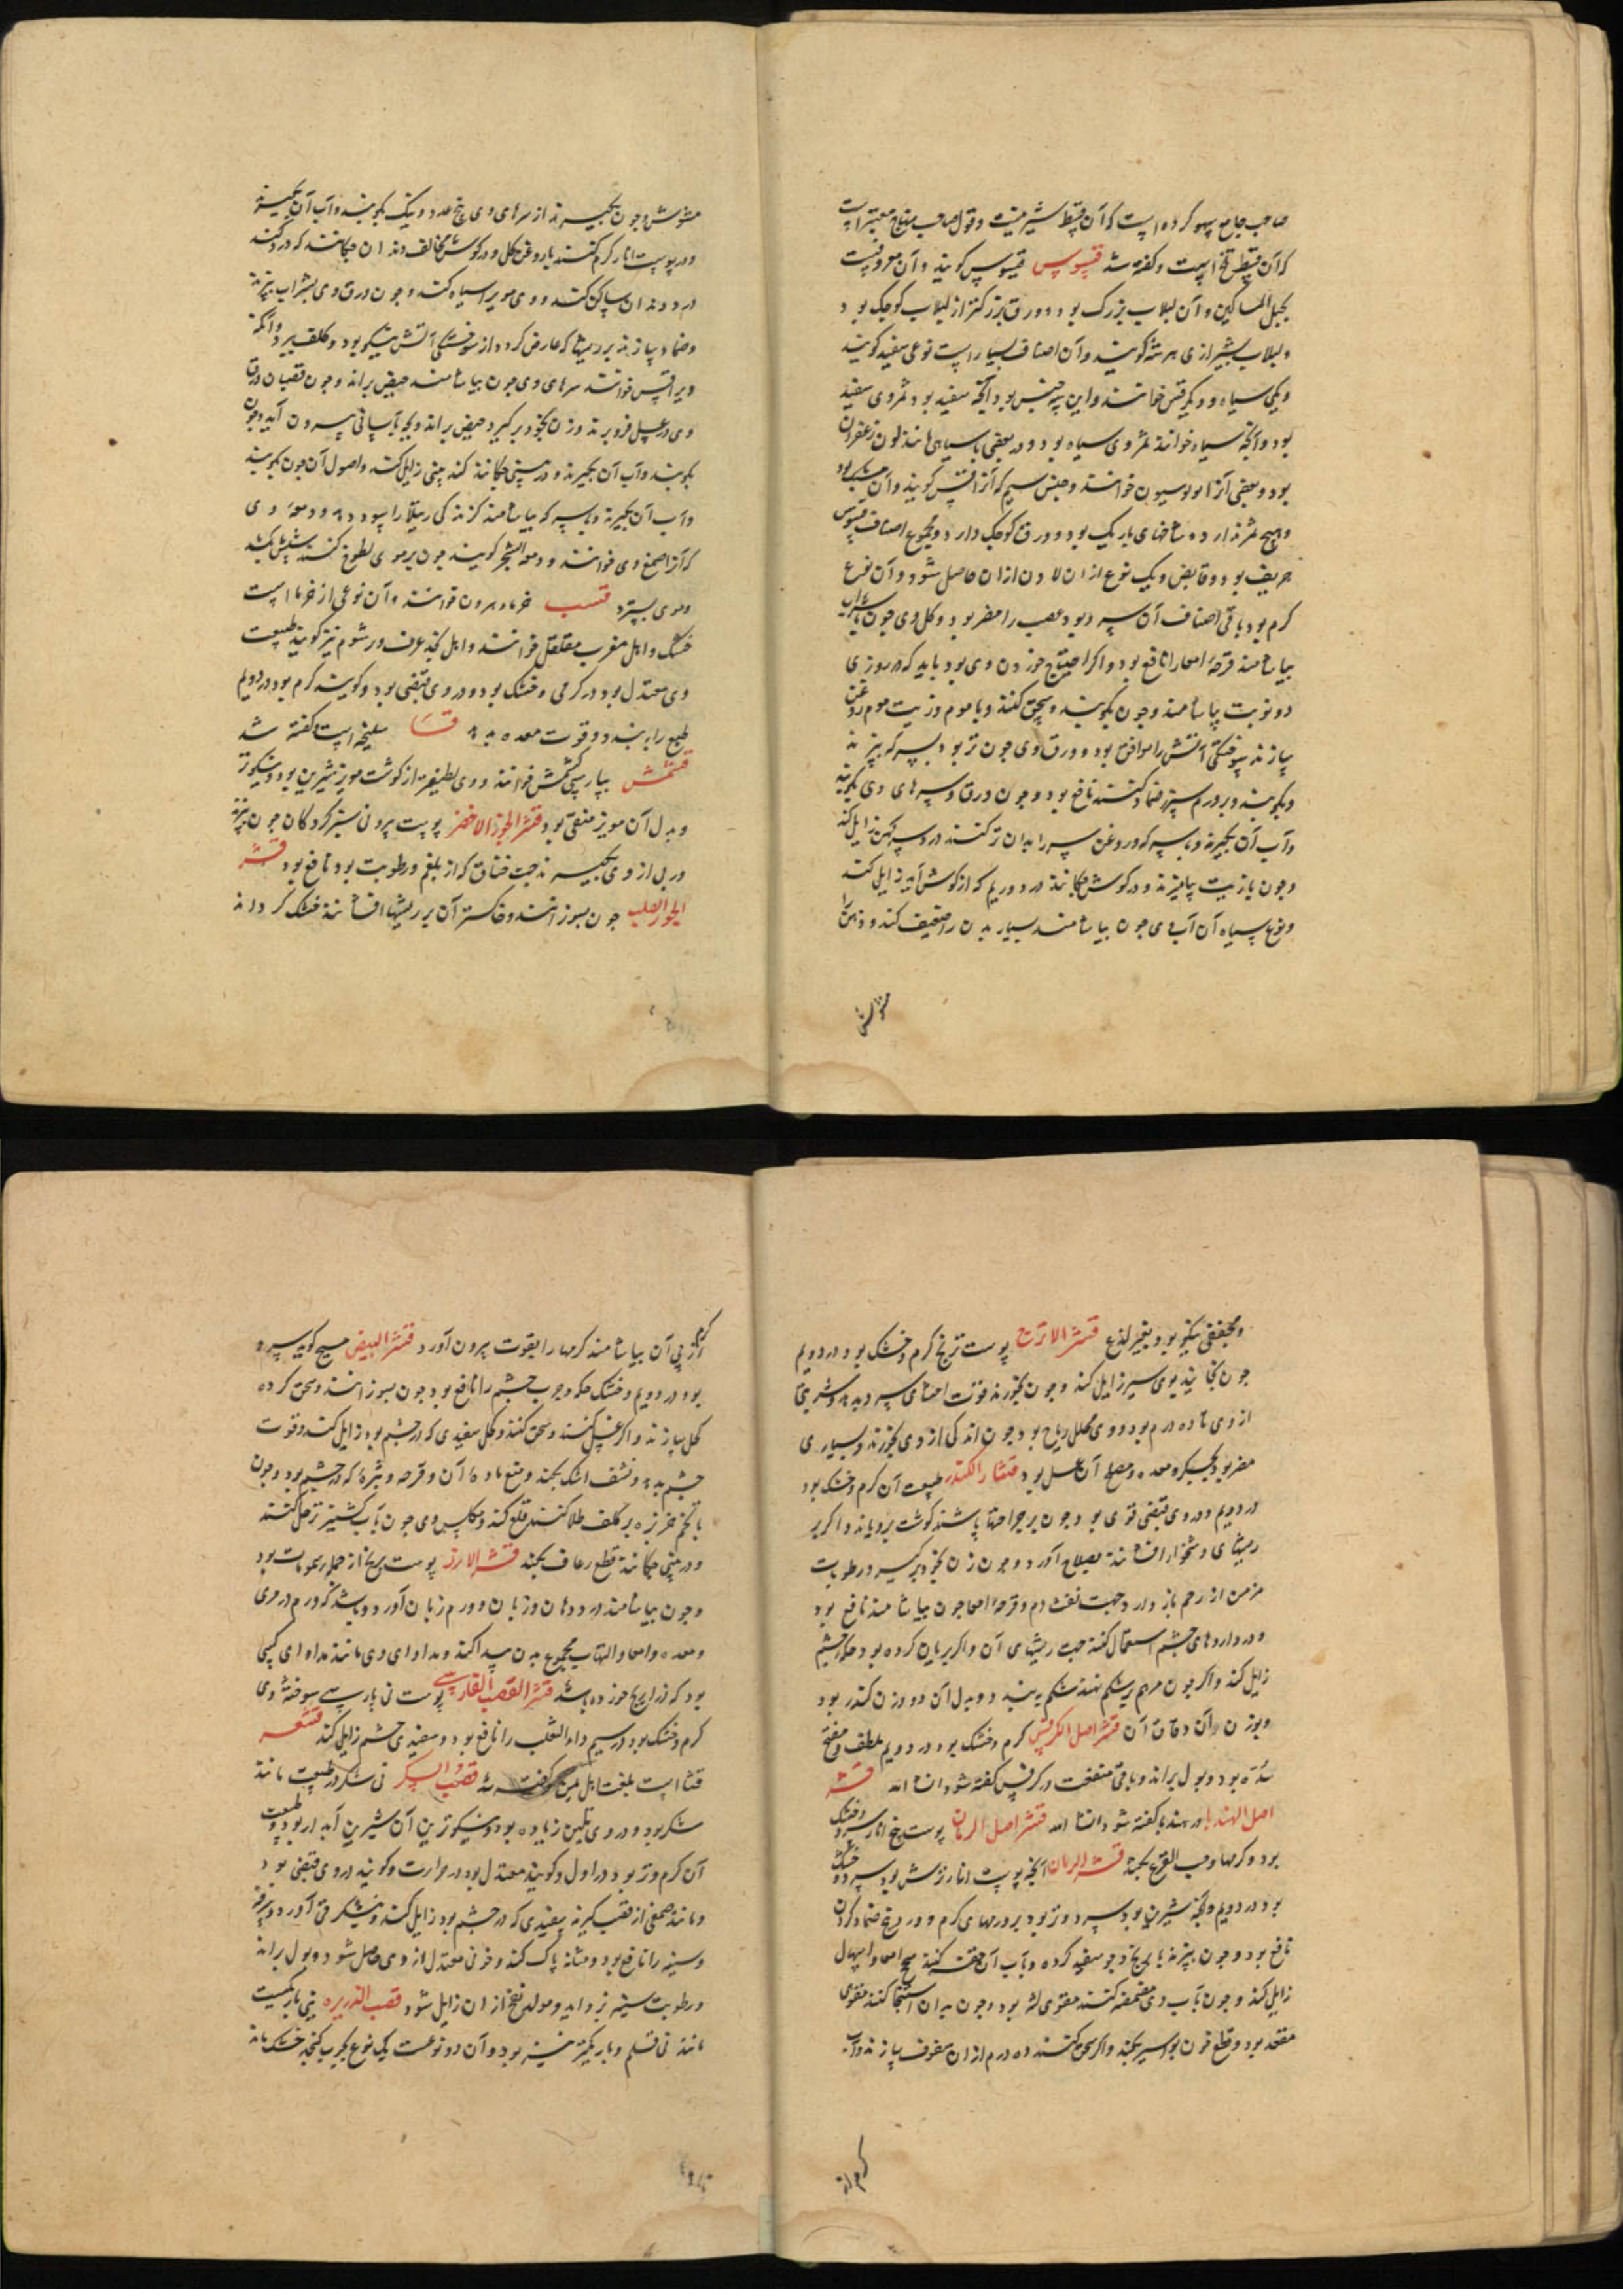 صاحب جامع سهو کرده است که آن قسط شیرینست و قول صاحب منهاج معتبر است
که آن قسط تلخ است و گفته شد قسوس قیسوس گویند و آن معروفست
بحبل المساکین و آن لبلاب بزرگ بود و ورق بزرکتر از لبلاب کوچک بود
و لبلاب بشیرازی هرشه کویند و آن اصناف بسیار است نوعی سفید کویند
و یکی سیاه و دیکر قتس خوانند و این سه جنس بود آنچه سفید بود ثمر وی سفید
بود و آنچه سیاه خوانند ثمر وی سیاه بود و در بعضی با سیاهی مانند لون زعفران
بود و بعضی آنرا خوانند و جنس سیم که آنرا قتس کویند و آن
و هیچ ثمر ندارد و شاخهای باریک بود و ورق کوچک دارد و مجموع اصناف قسوس
حریف بود و قابض و یک نوع از آن لادن از آن حاصل شود و آن نوع
کرم بود باقی اصناف آن سرد بود عصب را مضر بود و کل وی چون با شراب
بیاشامند قرحه امعا را نافع بود و اکر احتیاج خوردن وی بود باید که در روزی
دو نوبت بیاشامند و چون بکوبند و سحق کنند و با موم و زیت موم روغن
سازند سوختکی آتش را موافق بود و ورق وی چون تر بود بسرکه بپزند
و بکوبند و بر ورم سپرز ضماد کنند نافع بود و چون ورق و سرهای وی بکوبند
و آب آن بکیرند و با سرکه و روغن سر را بدان تر کنند درد سر کهن زایل کند
و چون با زیت بیامیزند و در کوش چکانند درد و ریم که از کوش آید زایل کند
و نوع سیاه آن آب وی چون بیاشامند بسیار بدن را ضعیف کند و ذهن را
مشوش
مشوش و چون بکیرند از سرهای وی پنج عدد و نیک بکوبند و آب آن بکیرند
و در پوست انار کرم کنند با روغن کل و در کوش مخالف دندان چکانند که درد کند
درد دندان ساکن کند و وی موی را سیاه کند و چون ورق وی بشراب بپزند
و ضماد سازند بر ریشها که عارض کردد از سوختکی آتش نیکو بود و کلف ببرد و آنکه
ویرا قتس خوانند سرهای وی چون بیاشامند حیض براند و چون قضبان ورق
وی در عسل فرو برند و زن بخود بر کیرد حیض براند و بچه بآسانی بیرون آید و چون
بکوبند و آب آن بکیرند و در بینی چکانند کند بینی زایل کند و اصول آن چون بکوبند
و آب آن بکیرند با سرکه بیاشامند کزندکی رتیلا را سود دهد و دمعه وی
که آنرا صمغ وی خوانند و دمعة الشجر کویند چون بر موی لطوخ کنند شپش بکشد
و موی بسترد قسب خرماء هرون خوانند و آن نوعی از خرما است
خشک و اهل مغرب مقلقل خوانند و اهل نجد عرف و رشوم نیز کویند طبیعت
وی معتدل بود در کرمی و خشک بود و در وی قبضی بود و کویند کرم بود در دویم
طبع را ببندد و قوت معده بدهد قسا سلیخه است و کفته شد
قشمش بپارسی کشمش خوانند و وی لطیفتر از کوشت مویز شیرین بود و نیکوتر
و بدل آن مویز منقی بود قشر الجوز الاخضر پوست بیرونی سبز کردکان چون بپزند
و ربی از وی بکیرند جهت خناق که از بلغم و رطوبت بود نافع بود قشر
الجوز الصلب چون بسوزانند و خاکستر آن بر ریشها افشانند خشک کرداند
و مجففی نیکو بود بغیر لذع قشر الاترج پوست ترنج کرم و خشک بود در دویم
چون بخایند بوی سیر زایل کند و چون بخورند قوت احشای سرد بدهد و شربتی
از وی تا ده درم بود و وی محلل ریاح بود چون اندکی از وی بخورند و بسیاری
مضر بود بجکر و معده و مصلح آن عسل بود قشار الکندر طبیعت آن کرم و خشک بود
در دویم و در وی قبضی قوی بود چون بر جراحتها پاشند کوشت برویاند و اکر بر
ریشهای دشخوار افشانند بصلاح آورد و چون زن بخود بر کیرد رطوبات
مزمن از رحم باز دارد جهت نفث دم و قرحه امعا چون بیاشامند نافع بود
و در داروهای چشم استعمال کنند جهت ریشهای آن و اکر بریان کرده بود حکه چشم
زایل کند و اکر چون مرهم بر شکم نهند شکم ببندد و بدل آن دو وزن کندر بود
و بوزن آن دقاق آن قشر اصل الکرفس کرم و خشک بود در دویم ملطف و مفتح
سده بود و بول براند و باقی منفعت در کرفس کفته شود ان شا الله قشر
اصل الهندبا در هندبا کفته شود انشا الله قشر اصل الرمان پوست بیخ انار سرد و خشک
بود و کرمها و حب القرع بکشد قشر الرمان آنچه پوست انار ترش بود سرد و خشک
بود در دویم و آنچه شیرین بود سرد و تر بود بر ورمهای کرم و در ضماد کردن
نافع بود و چون بپزند با برنج و جو سفید کرده و بآب آن حقنه کنند سحج امعا و اسهال
زایل کند و چون بآب وی مضمضه کنند مقوی لثه بود و چون بدان استنجا کنند مقوی
مقعد بود و قطع خون بواسیر بکند و اکر سحق کنند ده درم از آن سفوف سازند و آب
کرم از
کرم از پی آن بیاشامند کرمها را بقوت بیرون آورد قشر البیض مسیح کوید سرد
بود در دویم و خشک حکه و جرب چشم را نافع بود چون بسوزانند و سحق کرده
کحل سازند و اکر غسل کنند و سحق کنند و کحل سفیدی که در چشم بود زایل کند و قوت
چشم بدهد و نشف اشک بکند و منع ماده آن و قرحه و بثره که در چشم بود و چون
با تخم خربزه بر کلف طلا کنند قلع کند و مکلس وی چون بآب کشنیز تر حل کنند
و در بینی چکانند قطع رعاف بکند قشر الارز پوست برنج از جمله سمومات بود
و چون بیاشامند درد دهان و زبان و ورم زبان آورد و باشد که ورم در مری
و معده و امعا و التهاب بمجموع بدن پیدا کند و مداوای وی مانند مداوای کسی
بود که ذراریح خورده باشد قشر القصب الفارسی پوست نی پارسی سوخته وی
کرم و خشک بود در سیم داء الثعلب را نافع بود و سفیدی چشم زایل کند قشعر
قثا است بلغت اهل یمن کفته شد قصب السکر نی شکر در طبیعت مانند
شکر بود و در وی تلیین زیاده بود و نیکوترین آن شیرین آبدار بود و طبیعت
آن کرم و تر بود در اول و کویند معتدل بود در حرارت و کویند در وی قبضی بود
و مانند صمغی از قصب کیرند سفیدی که در چشم بود زایل کند و نیشکر قی آورد
و سینه را نافع بود و مثانه پاک کند و خونی معتدل از وی حاصل شود و بول براند
و رطوبت سینه بزداید و مولد نفخ از آن زایل شود قصب الذریره نی باریکست
مانند نی قلم و باریکتر نیز بود و آن دو نوعست یک نوع بچوب کنجد خشک ماند